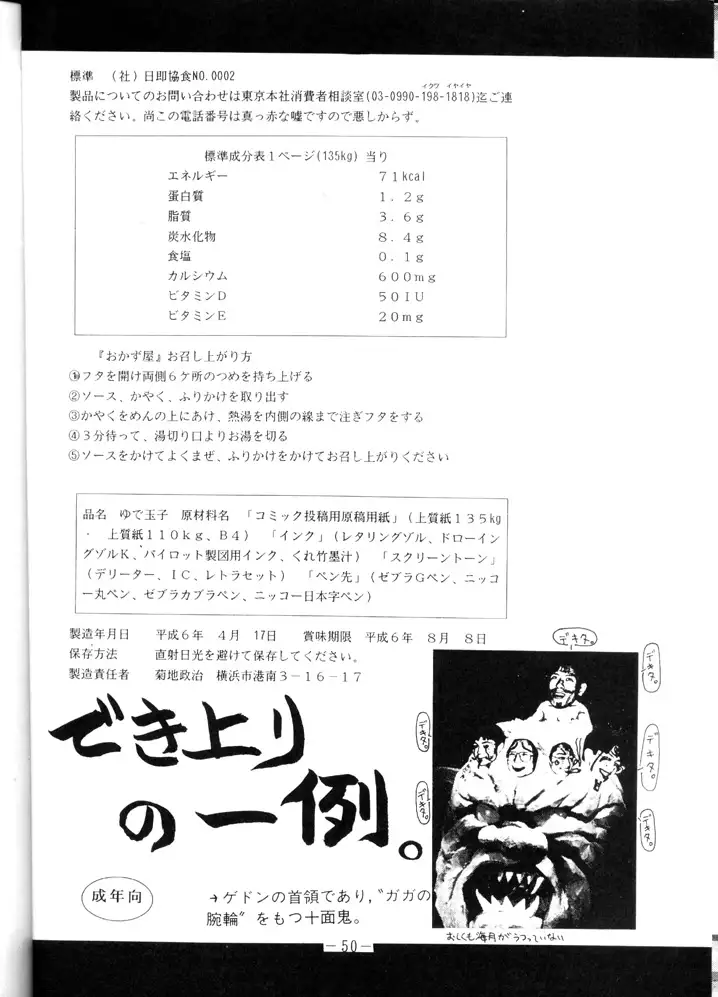 標準　（社）日即協食NO.0002
イクワ　イヤイヤ
製品についてのお問い合わせは東京本社消費者相談室(03-0990-198-1818)迄ご連
絡ください。尚この電話番号は真っ赤な嘘ですので悪しからず。
標準成分表１ページ(135kg)当り
エネルギー　７１kcal
蛋白質　１．２ｇ
脂質　３．６ｇ
炭水化物　８．４ｇ
食塩　０．１ｇ
カルシウム　６００mg
ビタミンＤ　５０ＩＵ
ビタミンＥ　２０mg
『おかず屋』お召し上がり方
①フタを開け両側６ケ所のつめを持ち上げる
②ソース、かやく、ふりかけを取り出す
③かやくをめんの上にあけ、熱湯を内側の線まで注ぎフタをする
④３分待って、湯切り口よりお湯を切る
⑤ソースをかけてよくまぜ、ふりかけをかけてお召し上がりください
品名　ゆで玉子　原材料名　「コミック投稿用原稿用紙」（上質紙１３５kg
・　上質紙１１０ｋｇ、Ｂ４）　「インク」（レタリングゾル、ドローイン
グゾルＫ、パイロット製図用インク、くれ竹墨汁）　「スクリーントーン」
（デリーター、ＩＣ、レトラセット）　「ペン先」（ゼブラＧペン、ニッコ
ー丸ペン、ゼブラカブラペン、ニッコー日本字ペン）
製造年月日　平成６年　４月　17日　賞味期限　平成６年　８月　８日
保存方法　直射日光を避けて保存してください。
製造責任者　菊地政治　横浜市港南３－１６－１７
でき上り
の一例。
デキタ。
デキタ。
デキタ。
デキタ。
デキタ。
デキタ。
成年向
→ゲドンの首領であり，〝ガガの
腕輪〟をもつ十面鬼。
おしくも海月がうつっていない
－50－